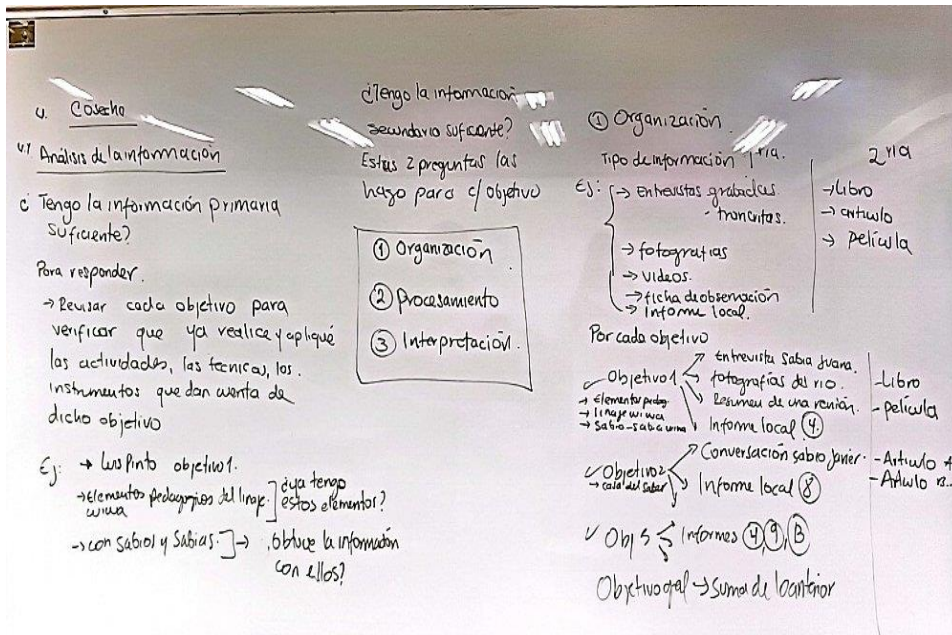 4. Cosecha
4.1 Análisis de la información
¿ Tengo la información primaria
suficiente?
Para responder.
→ Revisar cada objetivo para
verificar que ya realice y apliqué
las actividades, las tecnicas, los.
instrumentos que dan cuenta de
dicho objetivo
Ej: → Luis Pinto objetivo 1.
→ Elementos pedagogicos del linaje
wiwa
¿ya tengo
estos elementos?
→ con sabios y sabias. → ¿obtuve la información
con ellos?
¿Tengo la información
secundaria suficiente?
Estas 2 preguntas las
hago para c/objetivo
① Organización.
② Procesamiento
③ Interpretación.
① Organización.
Tipo de información 1ria.
Ej: → Entrevistas grabadas
- transcritas.
→ fotografias
→ videos.
→ ficha de observación
→ Informe local.
2ria
→ Libro
→ articulo
→ película
Por cada objetivo
✓ Objetivo 1
→ Elementos pedag
→ linaje wiwa
→ Sabio-sabia wiwa
Entrevista Sabia Juana.
fotografías del rio.
Resumen de una reunión.
Informe local ④.
- Libro
- película
✓ Objetivo 2
→ casa del saber
Conversación sabio Javier.
Informe local ⑧
- Articulo
- Artículo
✓ Obj Informes ④,⑨,
Objetivo gral → Suma de lo anterior